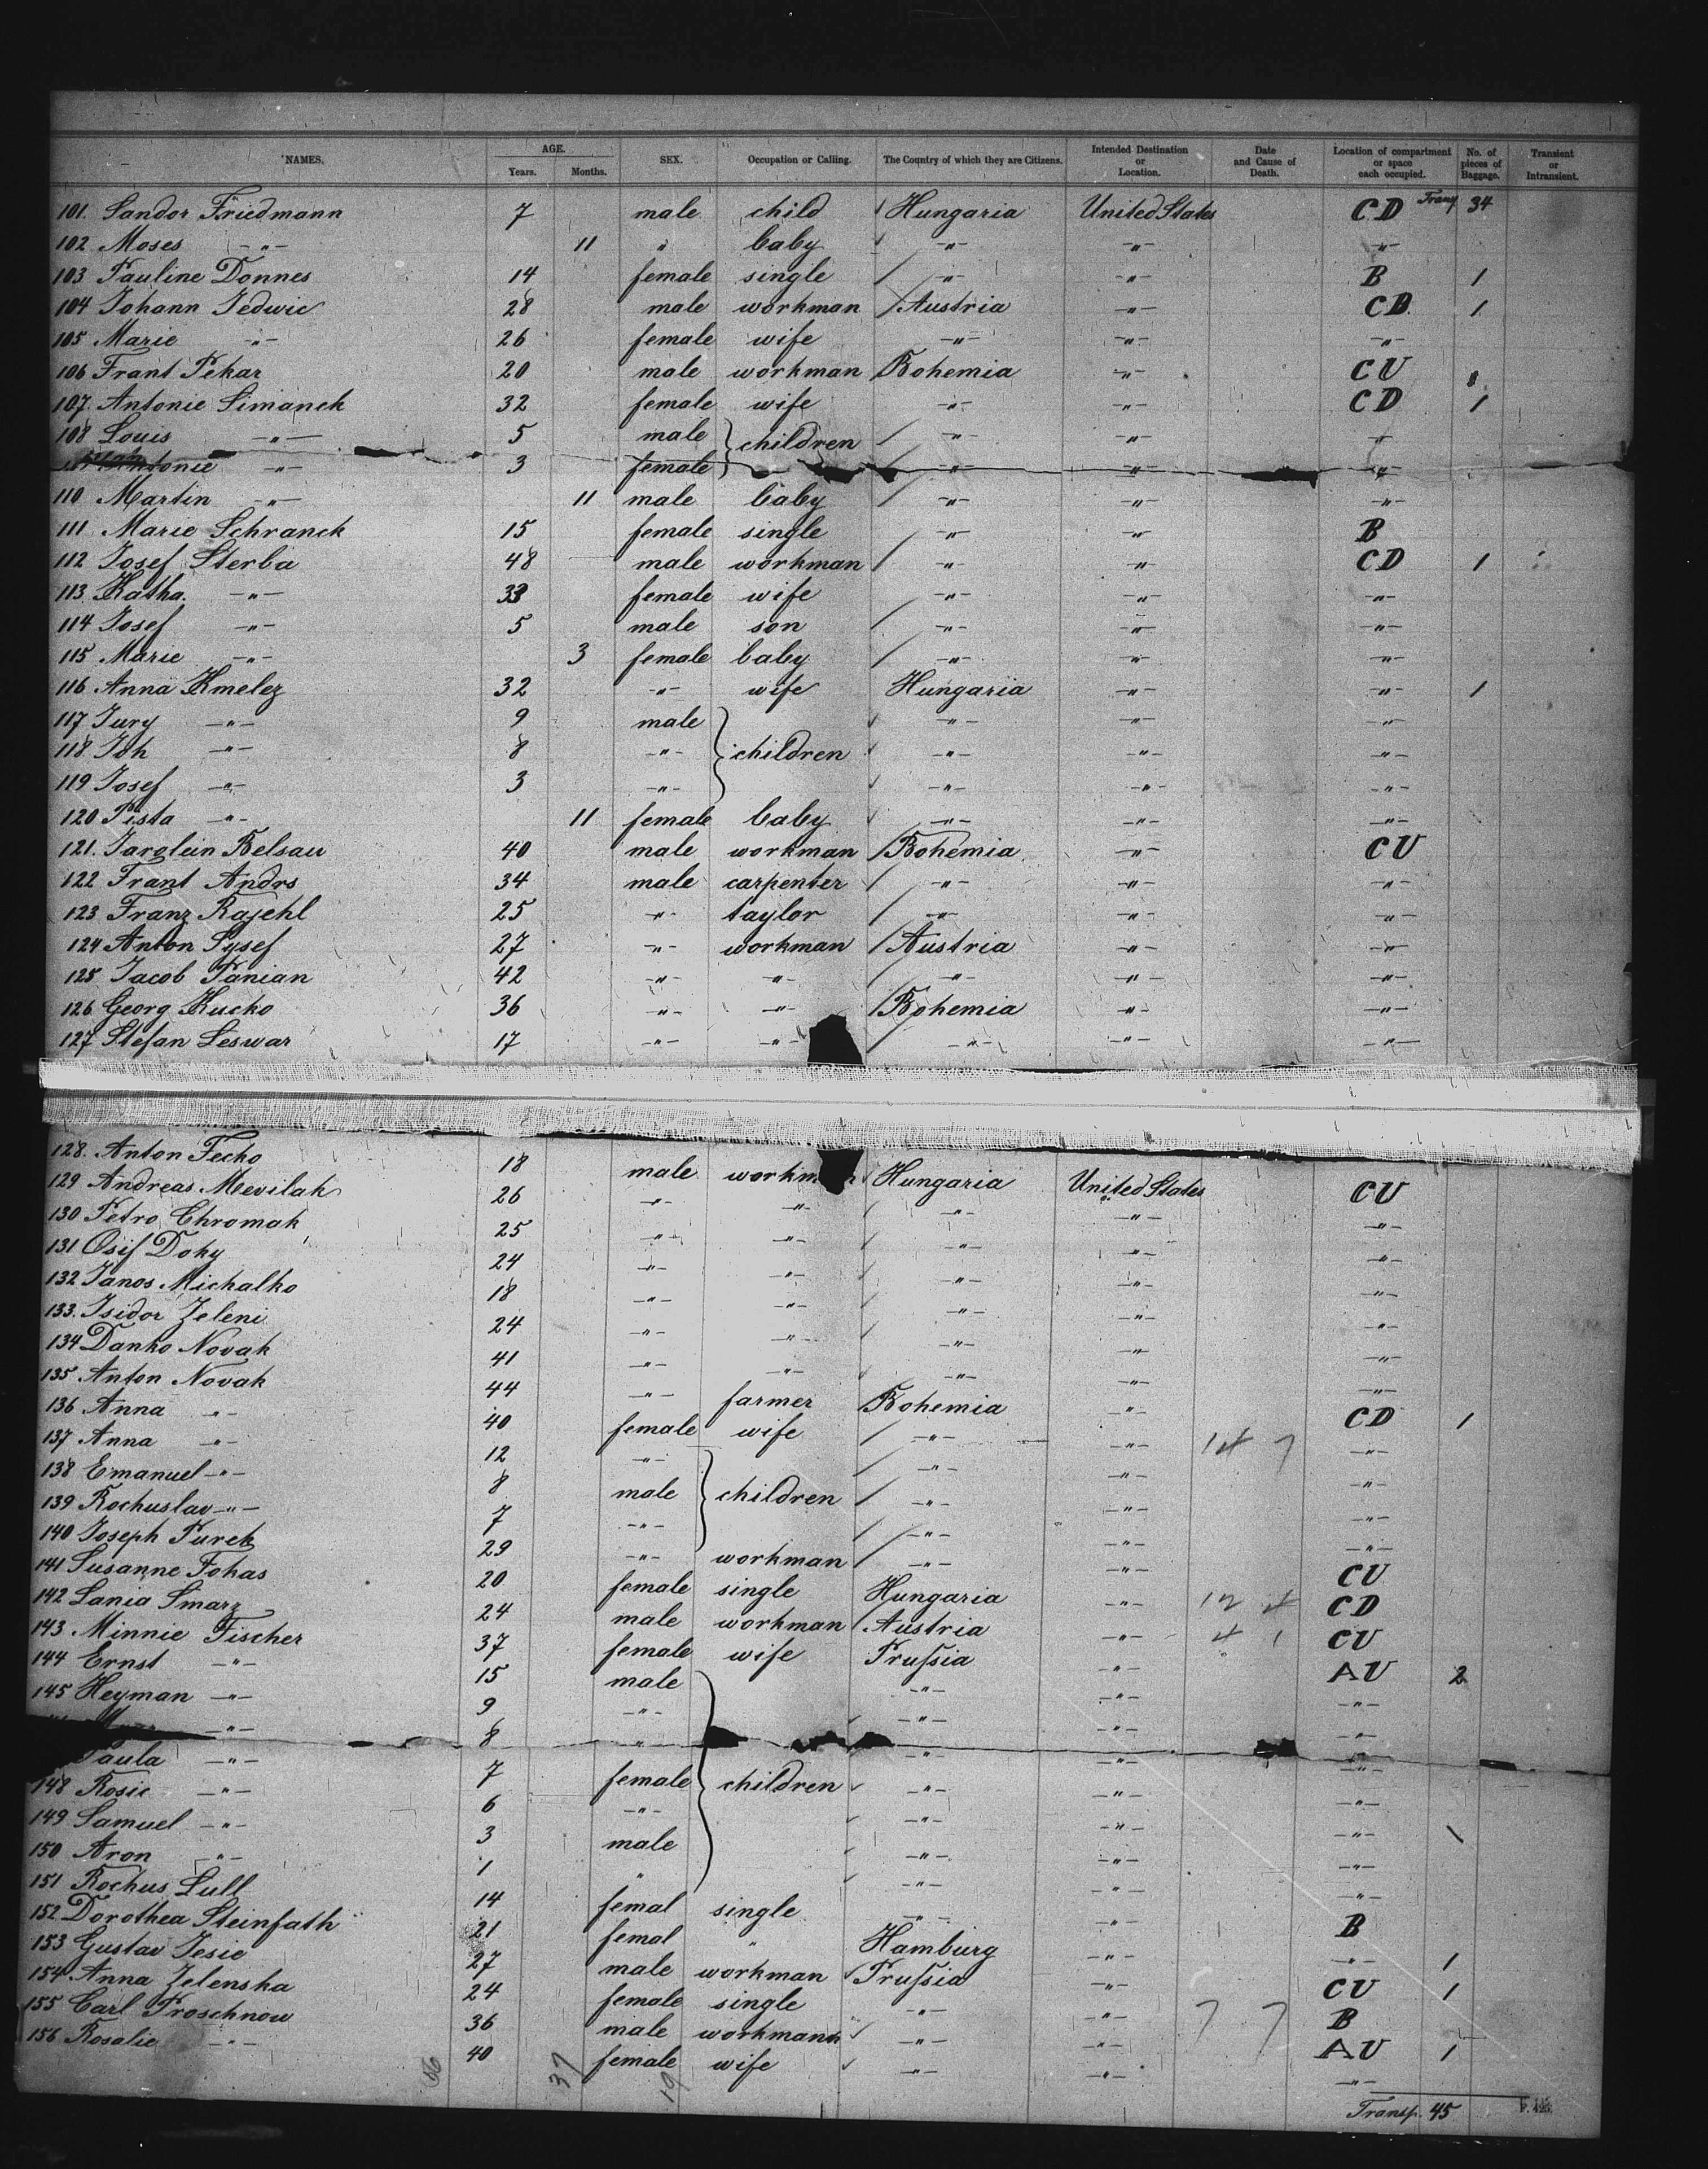 NAMES. AGE. Years. Months. SEX. Occupation or Calling. The Country of which they are Citizens. Intended Destination or Location. Date and Cause of Death. Location of compartment or space each occupied. No. of pieces of Baggage. Transient or Intransient.
101. Sandor Friedmann 7 male child Hungaria United States CD Transp 34
102 Moses -"- 11 " baby -"- -"- -"-
103 Pauline Donnes 14 female single -"- -"- B 1
104 Johann Jedwic 28 male workman Austria -"- CD 1
105 Marie -"- 26 female wife -"- -"- -"-
106 Frant Pekar 20 male workman Bohemia -"- CU "
107. Antonie Simanek 32 female wife -"- -"- CD 1
108 Louis -"- 5 male children -"- -"- -"-
Antonie -"- 3 female -"- -"- -"-
110 Martin -"- 11 male baby -"- -"- -"-
111 Marie Schranek 15 female single -"- -"- B
112 Josef Sterba 48 male workman -"- -"- CD 1
113 Katha. -"- 33 female wife -"- -"- -"-
114 Josef -"- 5 male son -"- -"- -"-
115 Marie -"- 3 female baby -"- -"- -"-
116 Anna Kmelez 32 -"- wife Hungaria -"- -"- 1
117 Jury -"- 9 male -"- -"- -"-
118 Joh -"- 8 -"- children -"- -"- -"-
119 Josef -"- 3 -"- -"- -"- -"-
120 Pista -"- 11 female baby -"- -"- -"-
121. Jarolein Belsau 40 male workman Bohemia -"- CU
122 Frant Andrs 34 male carpenter -"- -"- -"-
123 Franz Rajehl 25 -"- taylor -"- -"- -"-
124 Anton Sysef 27 -"- workman Austria -"- -"-
125 Jacob Panian 42 -"- -"- -"- -"- -"-
126 Georg Kucko 36 -"- -"- Bohemia -"- -"-
127 Stefan Leswar 17 -"- -"- -"- -"- -"-
128. Anton Fecko 18 male workman Hungaria United States CU
129 Andreas Mevilak 26 -"- -"- -"- -"- -"-
130 Petro Chromak 25 -"- -"- -"- -"- -"-
131 Osif Dohy 24 -"- -"- -"- -"- -"-
132 Janos Michalko 18 -"- -"- -"- -"- -"-
133. Isidor Zeleni 24 -"- -"- -"- -"- -"-
134 Danko Novak 41 -"- -"- -"- -"- -"-
135 Anton Novak 44 -"- farmer Bohemia -"- CD 1
136 Anna -"- 40 female wife -"- -"- -"-
137 Anna -"- 12 -"- -"- -"- -"-
138 Emanuel -"- 8 male children -"- -"- -"-
139 Rochuslav -"- 7 -"- -"- -"- -"-
140 Joseph Turek 29 -"- workman -"- -"- CU
141 Susanne Fohas 20 female single Hungaria -"- CD
142 Lania Smarz 24 male workman Austria -"- CU
143 Minnie Fischer 37 female wife Prussia -"- AU 2
144 Ernst -"- 15 male -"- -"- -"-
145 Heyman -"- 9 -"- -"- -"- -"-
-"- 8 " -"- -"- -"-
Paula -"- 7 female children -"- -"- -"-
148 Rosie -"- 6 -"- -"- -"- -"-
149 Samuel -"- 3 male -"- -"- -"-
150 Aron -"- 1 " -"- -"- -"-
151 Rochus Lull 14 femal single -"- -"- B
152 Dorothea Steinfath 21 femal " Hamburg -"- -"- 1
153 Gustav Jesie 27 male workman Prussia -"- CU 1
154 Anna Zelenska 24 female single -"- -"- B
155 Carl Proschnow 36 male workmann -"- -"- AU 1
156 Rosalie -"- 40 female wife -"- -"- -"-
Transp. 45